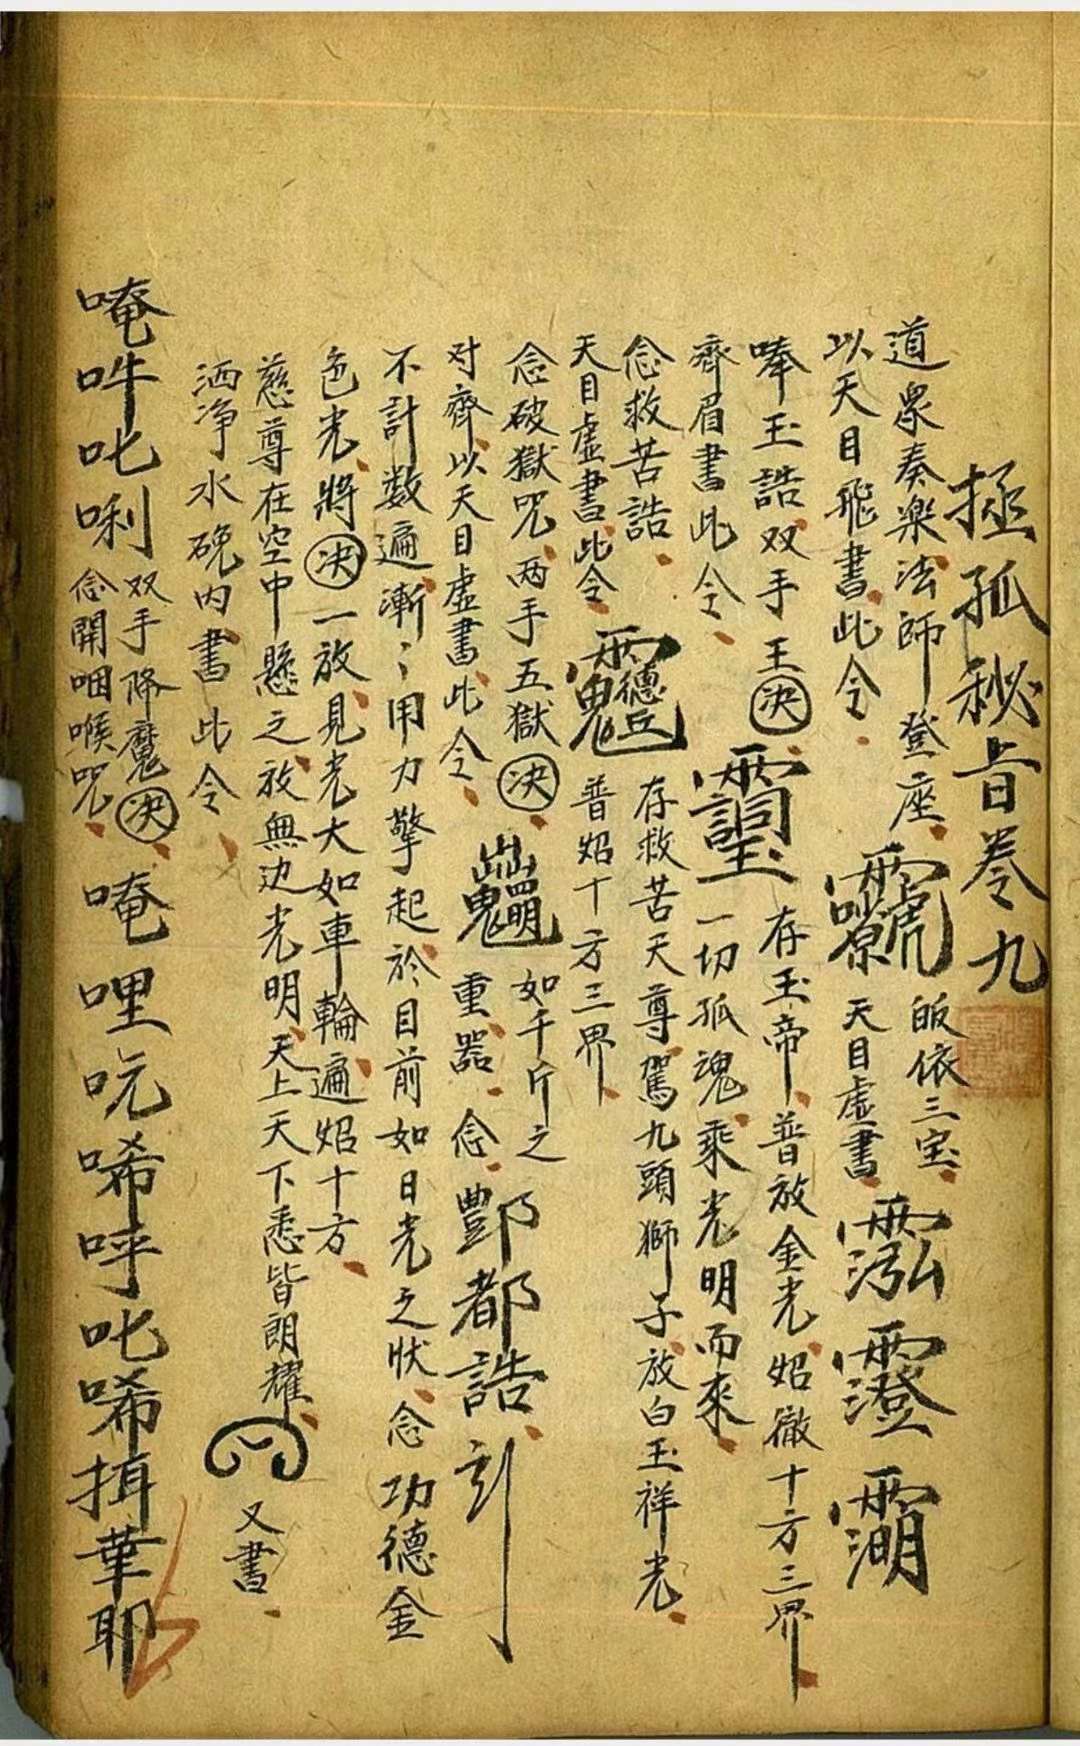 拯孤秘旨卷九
道眾奏樂法師登座、皈依三宝、
以天目飛書此令、天目虛書
奉玉誥双手王決存玉帝、普放金光、炤徹十方三界、
齊眉書此令、一切孤魂乘光明而來、
念救苦誥、存救苦天尊駕九頭獅子、放白玉祥光、
天目虛書此令、普炤十方三界、
念破獄咒、两手五獄決、如千斤之
对齊、以天目虛書此令、重器、念酆都誥、
不計数遍漸漸用力擎起、於目前如日光之狀、念功德金
色光、將決一放、見光大如車輪、遍炤十方、
慈尊在空中懸之、放無边光明、天上天下悉皆朗耀、又書、
洒净水碗内書此令、
唵吽叱唎双手降魔決、唵哩吭唏呼叱唏揖華耶
念開咽喉咒、